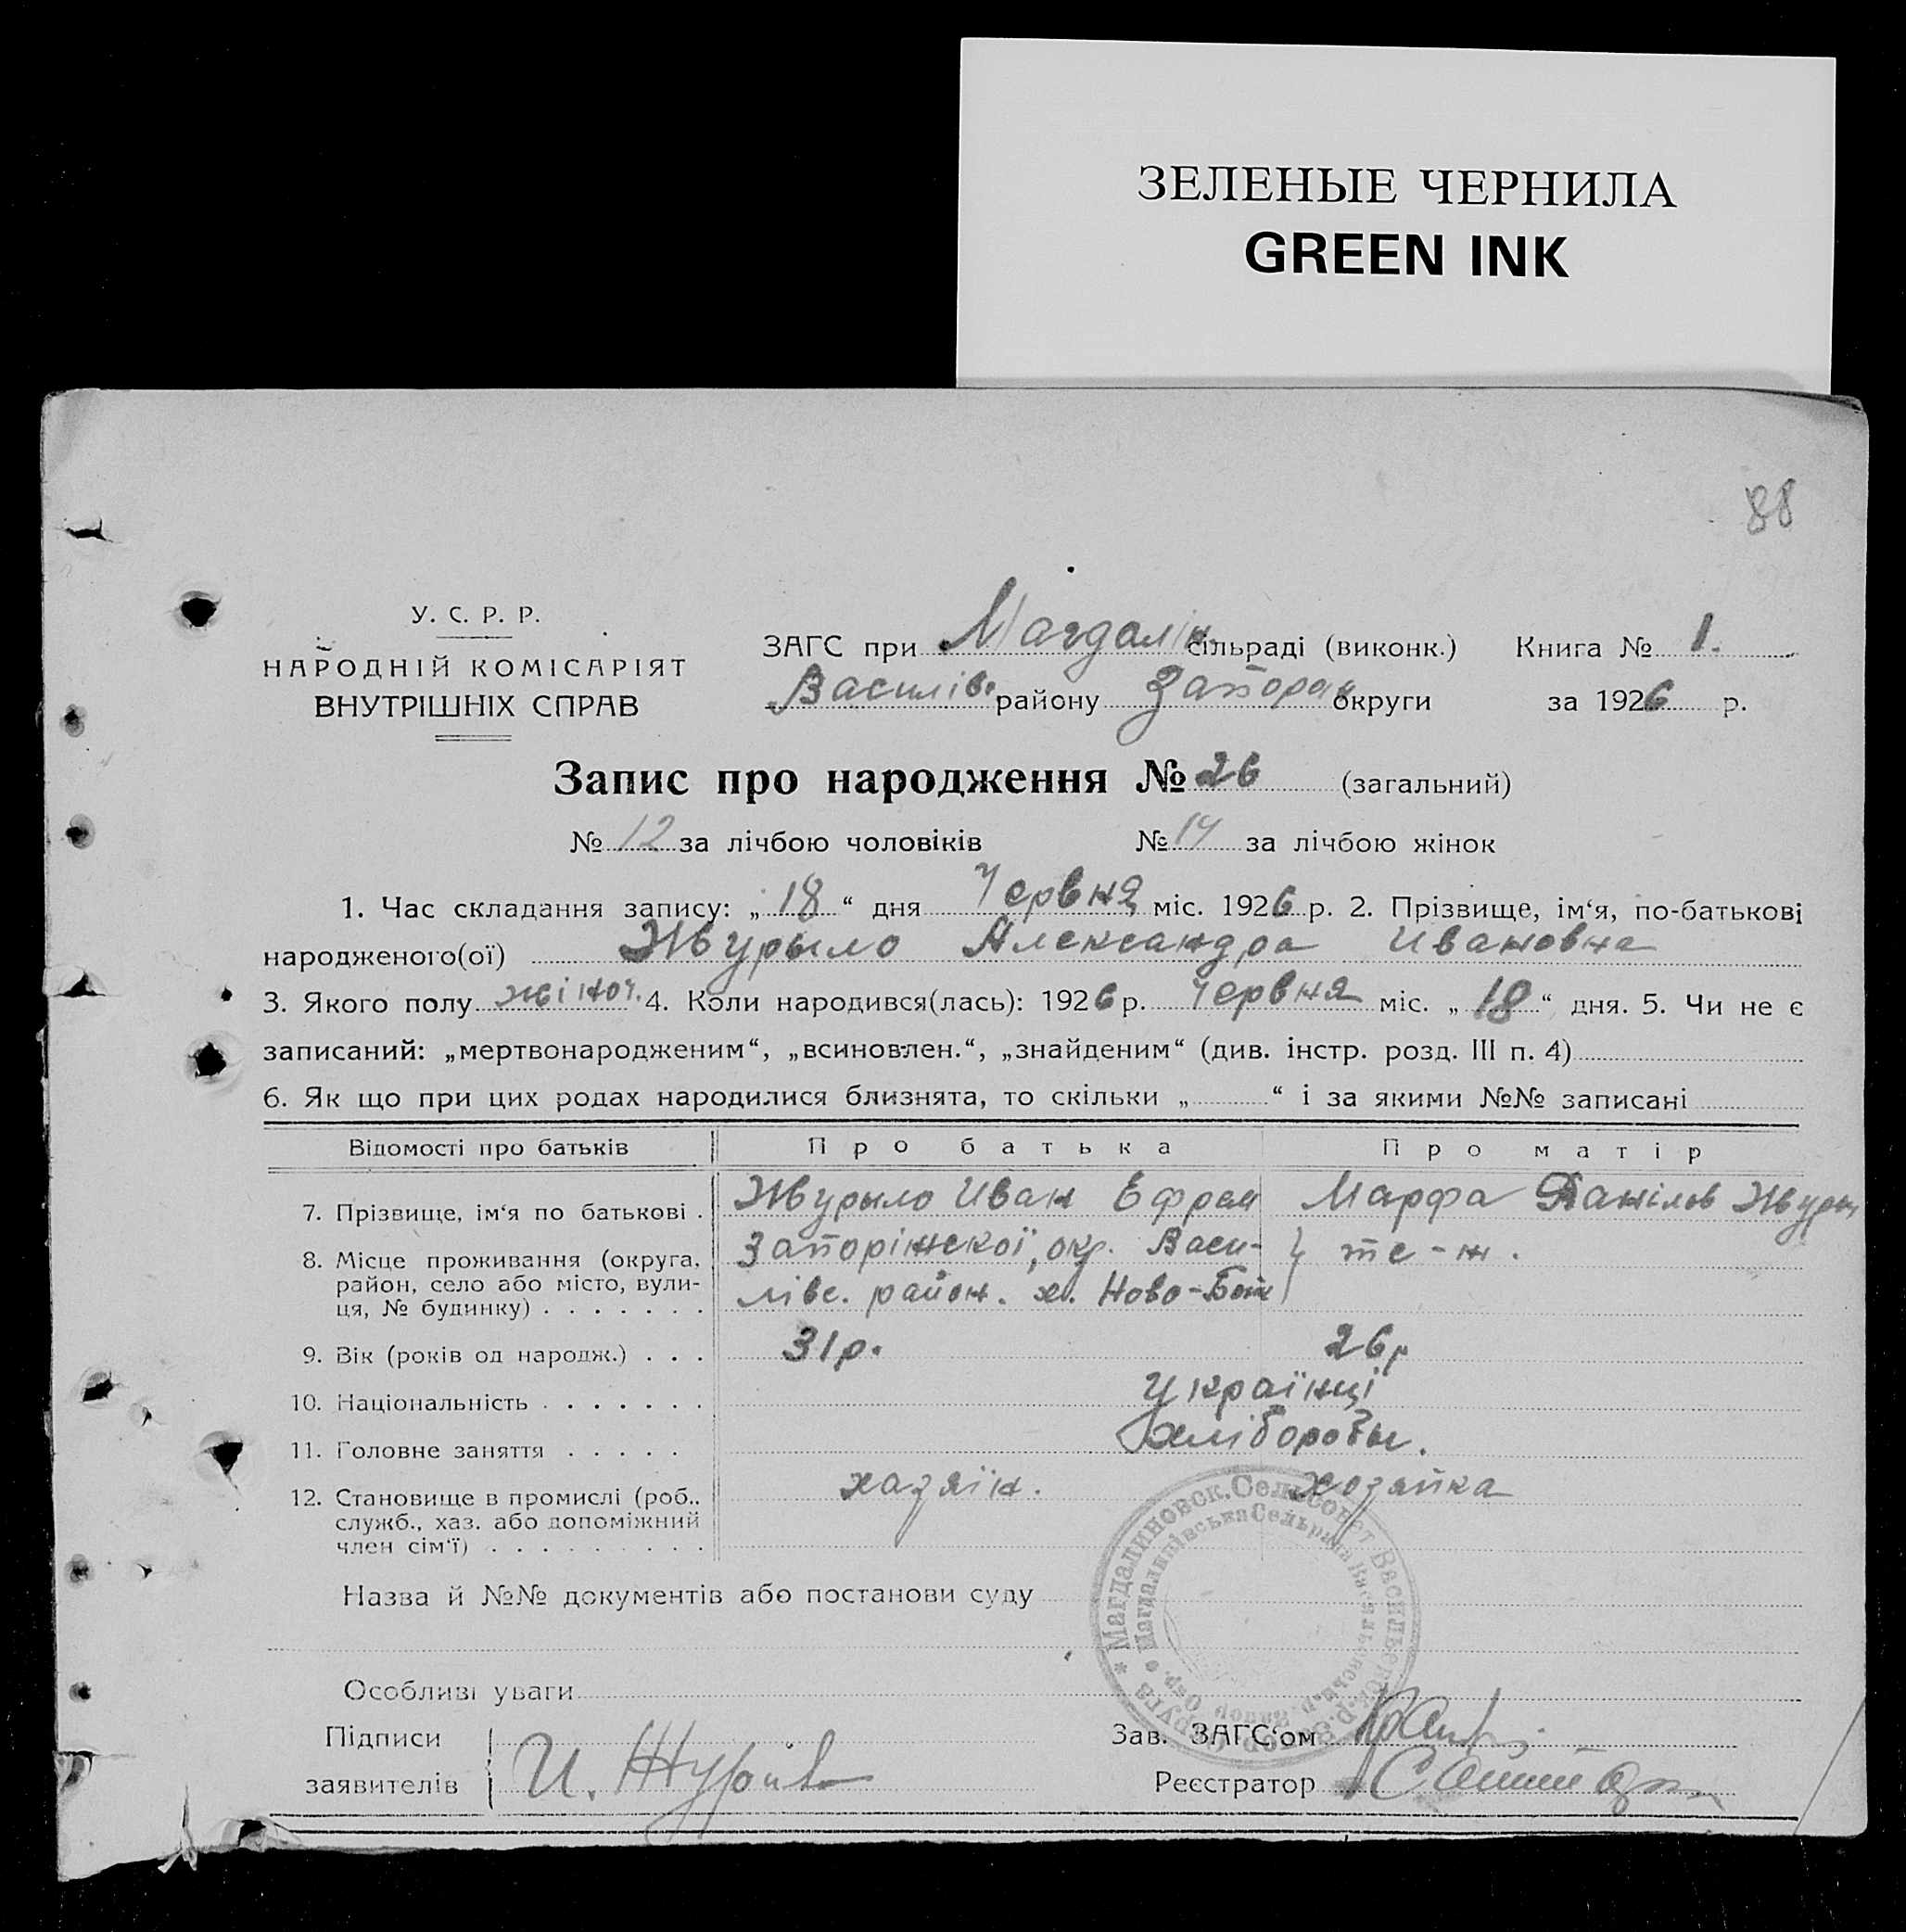 ЗЕЛЕНЫЕ ЧЕРНИЛА
GREEN INK
88
У. С. Р. Р.
НАРОДНІЙ КОМІСАРІЯТ
ВНУТРІШНІХ СПРАВ
ЗАГС при Магдалін. сільраді (виконк.) Книга № 1.
Василів. району Запорож округи за 1926 р.
Запис про народження № 26 (загальний)
№ 12 за лічбою чоловіків № 14 за лічбою жінок
1. Час складання запису: „18“ дня Червня міс. 1926 р. 2. Прізвище, ім‘я, по-батькові
народженого(ої) Журыло Александра Ивановна
3. Якого полу жіноч. 4. Коли народився(лась): 1926 р. Червня міс. „18“ дня. 5. Чи не є
записаний: „мертвонародженим“, „всиновлен.“, „знайденим“ (див. інстр. розд. III п. 4)
6. Як що при цих родах народилися близнята, то скільки „ “ і за якими №№ записані
Відомості про батьків Про батька Про матір
7. Прізвище, ім‘я по батькові . Журыло Иван Ефрем Марфа Данілов
8. Місце проживання (округа, Запоріжської, окр. Васи- } те-ж.
район, село або місто, вули-
ця, № будинку) . . . . . . . лівс. район. х. Ново-
9. Вік (років од народж.) . . . 31р. 26р
10. Національність . . . . . . . Українці
11. Головне заняття . . . . . Хлібороби.
12. Становище в промислі (роб., хазяїн. хозяйка
служб., хаз. або допоміжний
член сім‘ї) . . . . . . . . .
Назва й №№ документів або постанови суду
* Магдалиновск. Сельсовет Васильевск. р. Запор. Округа
Магдалинівська Сельрада
Особливі уваги
Підписи
заявителів И. Журило
Зав. ЗАГС‘ом
Реєстратор